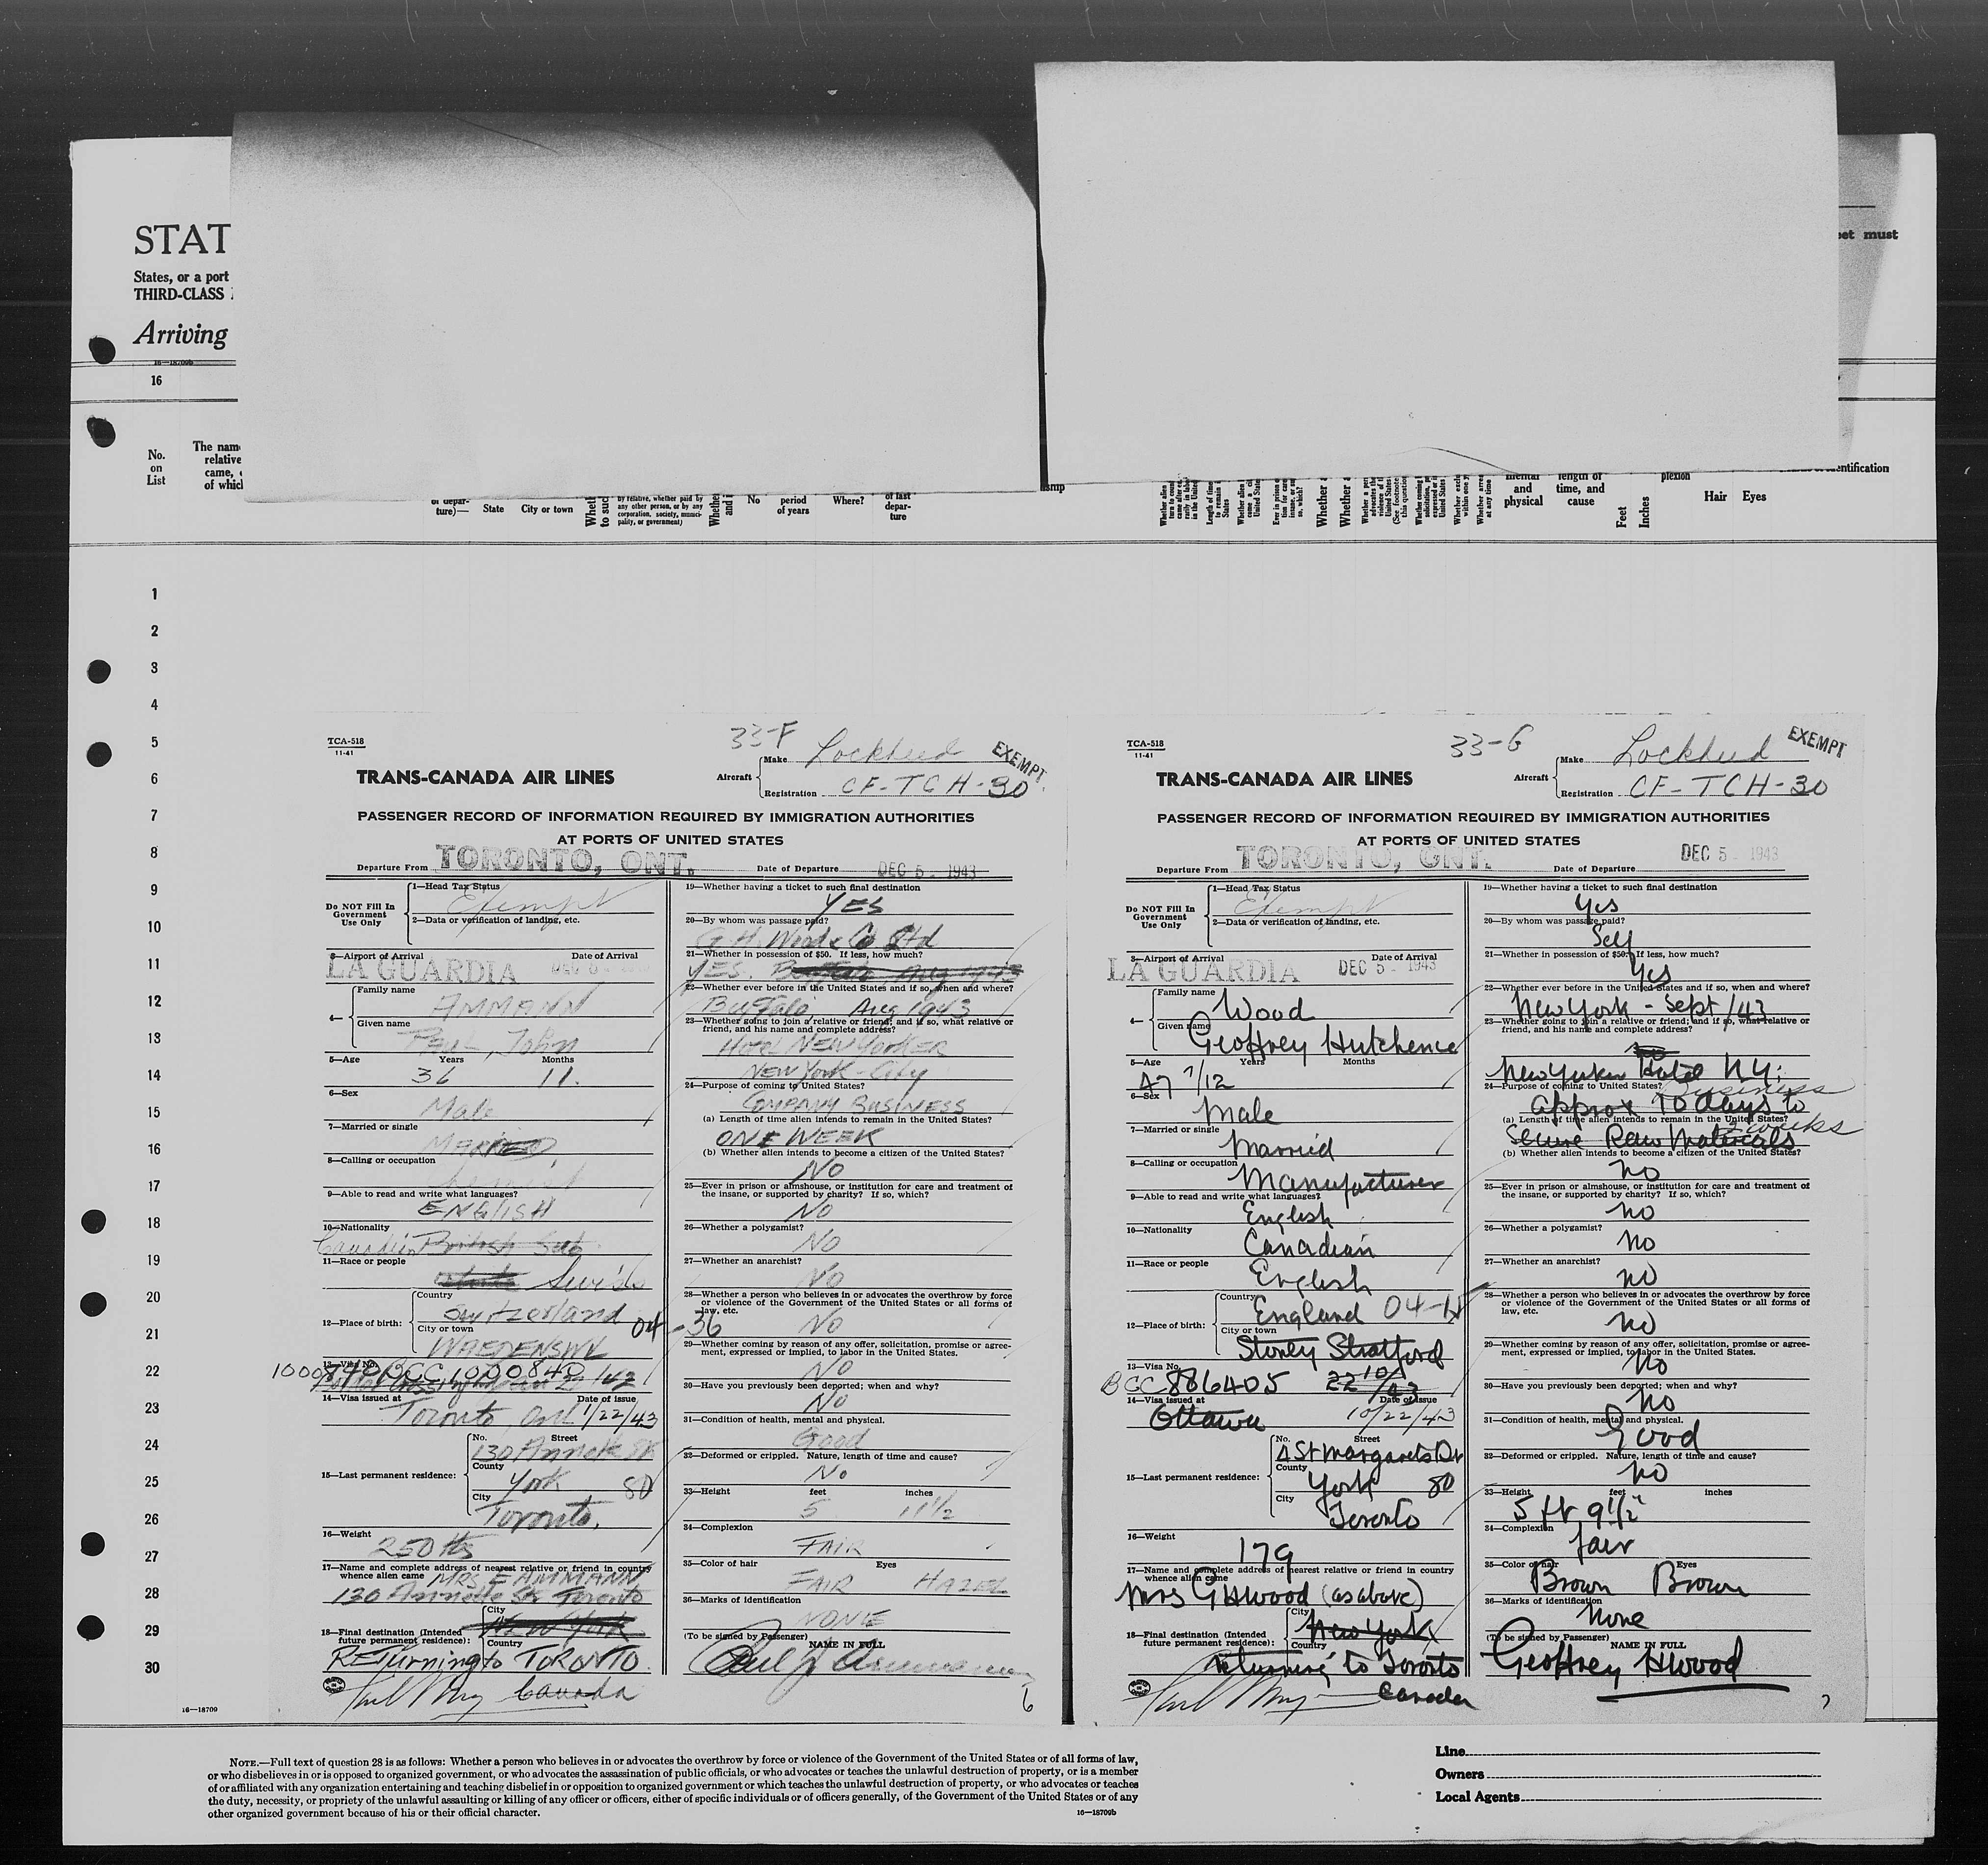 STAT
States, or a port
THIRD-CLASS
Arriving
eet must
16—18709b
16
No.
on
List
The nam
relative
came,
of which
of depar-
ture)—
State
City or town
by relative, whether paid by
any other person, or by any
corporation, society, munici-
pality, or government)
No
period
of years
Where?
of last
depar-
ture
mental
and
physical
length of
time, and
cause
Feet
Inches
plexion
Hair
Eyes
entification
1
2
3
4
5
6
7
8
9
10
11
12
13
14
15
16
17
18
19
20
21
22
23
24
25
26
27
28
29
30
16—18709
TCA-518
11-41
33-F
EXEMPT
TRANS-CANADA AIR LINES
Aircraft
Make Lockheed
Registration CF-TCH-30
PASSENGER RECORD OF INFORMATION REQUIRED BY IMMIGRATION AUTHORITIES
AT PORTS OF UNITED STATES
Departure From TORONTO, ONT. Date of Departure DEC 5 - 1943
Do NOT Fill In
Government
Use Only
1—Head Tax Status
Exempt
2—Data or verification of landing, etc.
3—Airport of Arrival Date of Arrival
LA GUARDIA DEC 5
4—
Family name
AMMANN
Given name
John
5—Age Years Months
36 11.
6—Sex
Male
7—Married or single
MARRIED
8—Calling or occupation
Chemist
9—Able to read and write what languages?
ENGLISH
10—Nationality
Canadian British Sub.
11—Race or people
Swiss
12—Place of birth:
Country
Switzerland 04-36
City or town
WAEDENSWIL
13—Visa No.
1000840 BCC 1000840
14—Visa issued at Date of issue
Toronto, Ont 1/22/43
15—Last permanent residence:
No. Street
130 Annette St
County
York 80
City
Toronto.
16—Weight
250 lbs
17—Name and complete address of nearest relative or friend in country
whence alien came MRS E AMMANN
130 Annette St Toronto
18—Final destination (Intended
future permanent residence):
City
New York
Country
RETurning to TORONTO
Canada
19—Whether having a ticket to such final destination
YES
20—By whom was passage paid?
G.H. Wood & Co Ltd
21—Whether in possession of $50. If less, how much?
YES. Buffalo, Aug 1943
22—Whether ever before in the United States and if so, when and where?
Buffalo, Aug 1943
23—Whether going to join a relative or friend; and if so, what relative or
friend, and his name and complete address?
HOTEL NEW YORKER
NEW YORK - City
24—Purpose of coming to United States?
COMPANY BUSINESS
(a) Length of time alien intends to remain in the United States?
ONE WEEK
(b) Whether alien intends to become a citizen of the United States?
NO
25—Ever in prison or almshouse, or institution for care and treatment of
the insane, or supported by charity? If so, which?
NO
26—Whether a polygamist?
NO
27—Whether an anarchist?
NO
28—Whether a person who believes in or advocates the overthrow by force
or violence of the Government of the United States or all forms of
law, etc.
NO
29—Whether coming by reason of any offer, solicitation, promise or agree-
ment, expressed or implied, to labor in the United States.
NO
30—Have you previously been deported; when and why?
NO
31—Condition of health, mental and physical.
Good
32—Deformed or crippled. Nature, length of time and cause?
No
33—Height feet inches
5 11 1/2
34—Complexion
FAIR
35—Color of hair Eyes
FAIR HAZEL
36—Marks of identification
NONE
(To be signed by Passenger) NAME IN FULL
Paul J Ammann
6
TCA-518
11-41
33-G
EXEMPT
TRANS-CANADA AIR LINES
Aircraft
Make Lockheed
Registration CF-TCH-30
PASSENGER RECORD OF INFORMATION REQUIRED BY IMMIGRATION AUTHORITIES
AT PORTS OF UNITED STATES
Departure From TORONTO, ONT. Date of Departure DEC 5 - 1943
Do NOT Fill In
Government
Use Only
1—Head Tax Status
Exempt
2—Data or verification of landing, etc.
3—Airport of Arrival Date of Arrival
LA GUARDIA DEC 5 - 1943
4—
Family name
Wood
Given name
Geoffrey Hutchence
5—Age Years Months
47 7/12
6—Sex
Male
7—Married or single
Married
8—Calling or occupation
Manufacturer
9—Able to read and write what languages?
English
10—Nationality
Canadian
11—Race or people
English
12—Place of birth:
Country
England
City or town
Stoney Stratford
13—Visa No.
BCC 886405 22 10/43
14—Visa issued at Date of issue
Ottawa 10/22/43
15—Last permanent residence:
No. Street
4 St Margarets Dr
County
York 80
City
Toronto
16—Weight
179
17—Name and complete address of nearest relative or friend in country
whence alien came
Mrs G H Wood (as above)
18—Final destination (Intended
future permanent residence):
City
New York
Country
returning to Toronto
Canada
19—Whether having a ticket to such final destination
Yes
20—By whom was passage paid?
Self
21—Whether in possession of $50. If less, how much?
Yes
22—Whether ever before in the United States and if so, when and where?
New York - Sept/43
23—Whether going to join a relative or friend; and if so, what relative or
friend, and his name and complete address?
New Yorker Hotel N.Y.
24—Purpose of coming to United States?
Business
approx 10 days to
(a) Length of time alien intends to remain in the United States?
2 weeks
Secure Raw Materials
(b) Whether alien intends to become a citizen of the United States?
no
25—Ever in prison or almshouse, or institution for care and treatment of
the insane, or supported by charity? If so, which?
no
26—Whether a polygamist?
no
27—Whether an anarchist?
no
28—Whether a person who believes in or advocates the overthrow by force
or violence of the Government of the United States or all forms of
law, etc.
no
29—Whether coming by reason of any offer, solicitation, promise or agree-
ment, expressed or implied, to labor in the United States.
No
30—Have you previously been deported; when and why?
no
31—Condition of health, mental and physical.
Good
32—Deformed or crippled. Nature, length of time and cause?
no
33—Height feet inches
5 ft 9 1/2"
34—Complexion
fair
35—Color of hair Eyes
Brown Brown
36—Marks of identification
None
(To be signed by Passenger) NAME IN FULL
Geoffrey H Wood
7
NOTE.—Full text of question 28 is as follows: Whether a person who believes in or advocates the overthrow by force or violence of the Government of the United States or of all forms of law,
or who disbelieves in or is opposed to organized government, or who advocates the assassination of public officials, or who advocates or teaches the unlawful destruction of property, or is a member
of or affiliated with any organization entertaining and teaching disbelief in or opposition to organized government or which teaches the unlawful destruction of property, or who advocates or teaches
the duty, necessity, or propriety of the unlawful assaulting or killing of any officer or officers, either of specific individuals or of officers generally, of the Government of the United States or of any
other organized government because of his or their official character.
16—18709b
Line
Owners
Local Agents